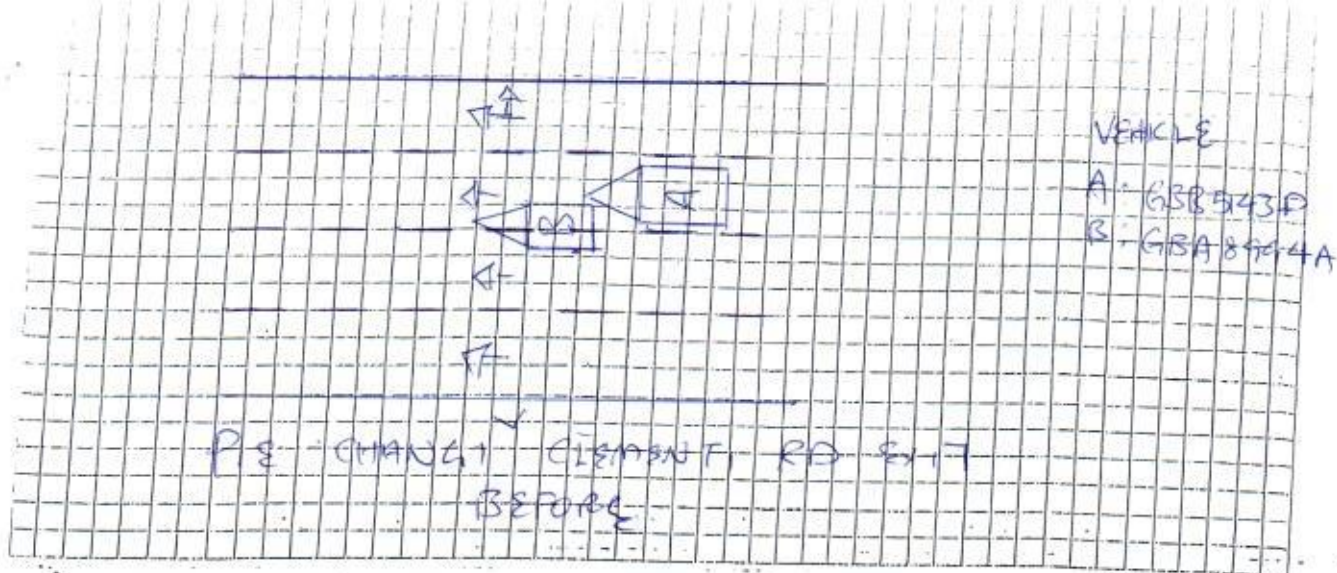 VEHICLE
A
B
A: GBB5743D
B: GBA8944A
PIE CHANGI CLEMENTI RD EXIT
BEFORE